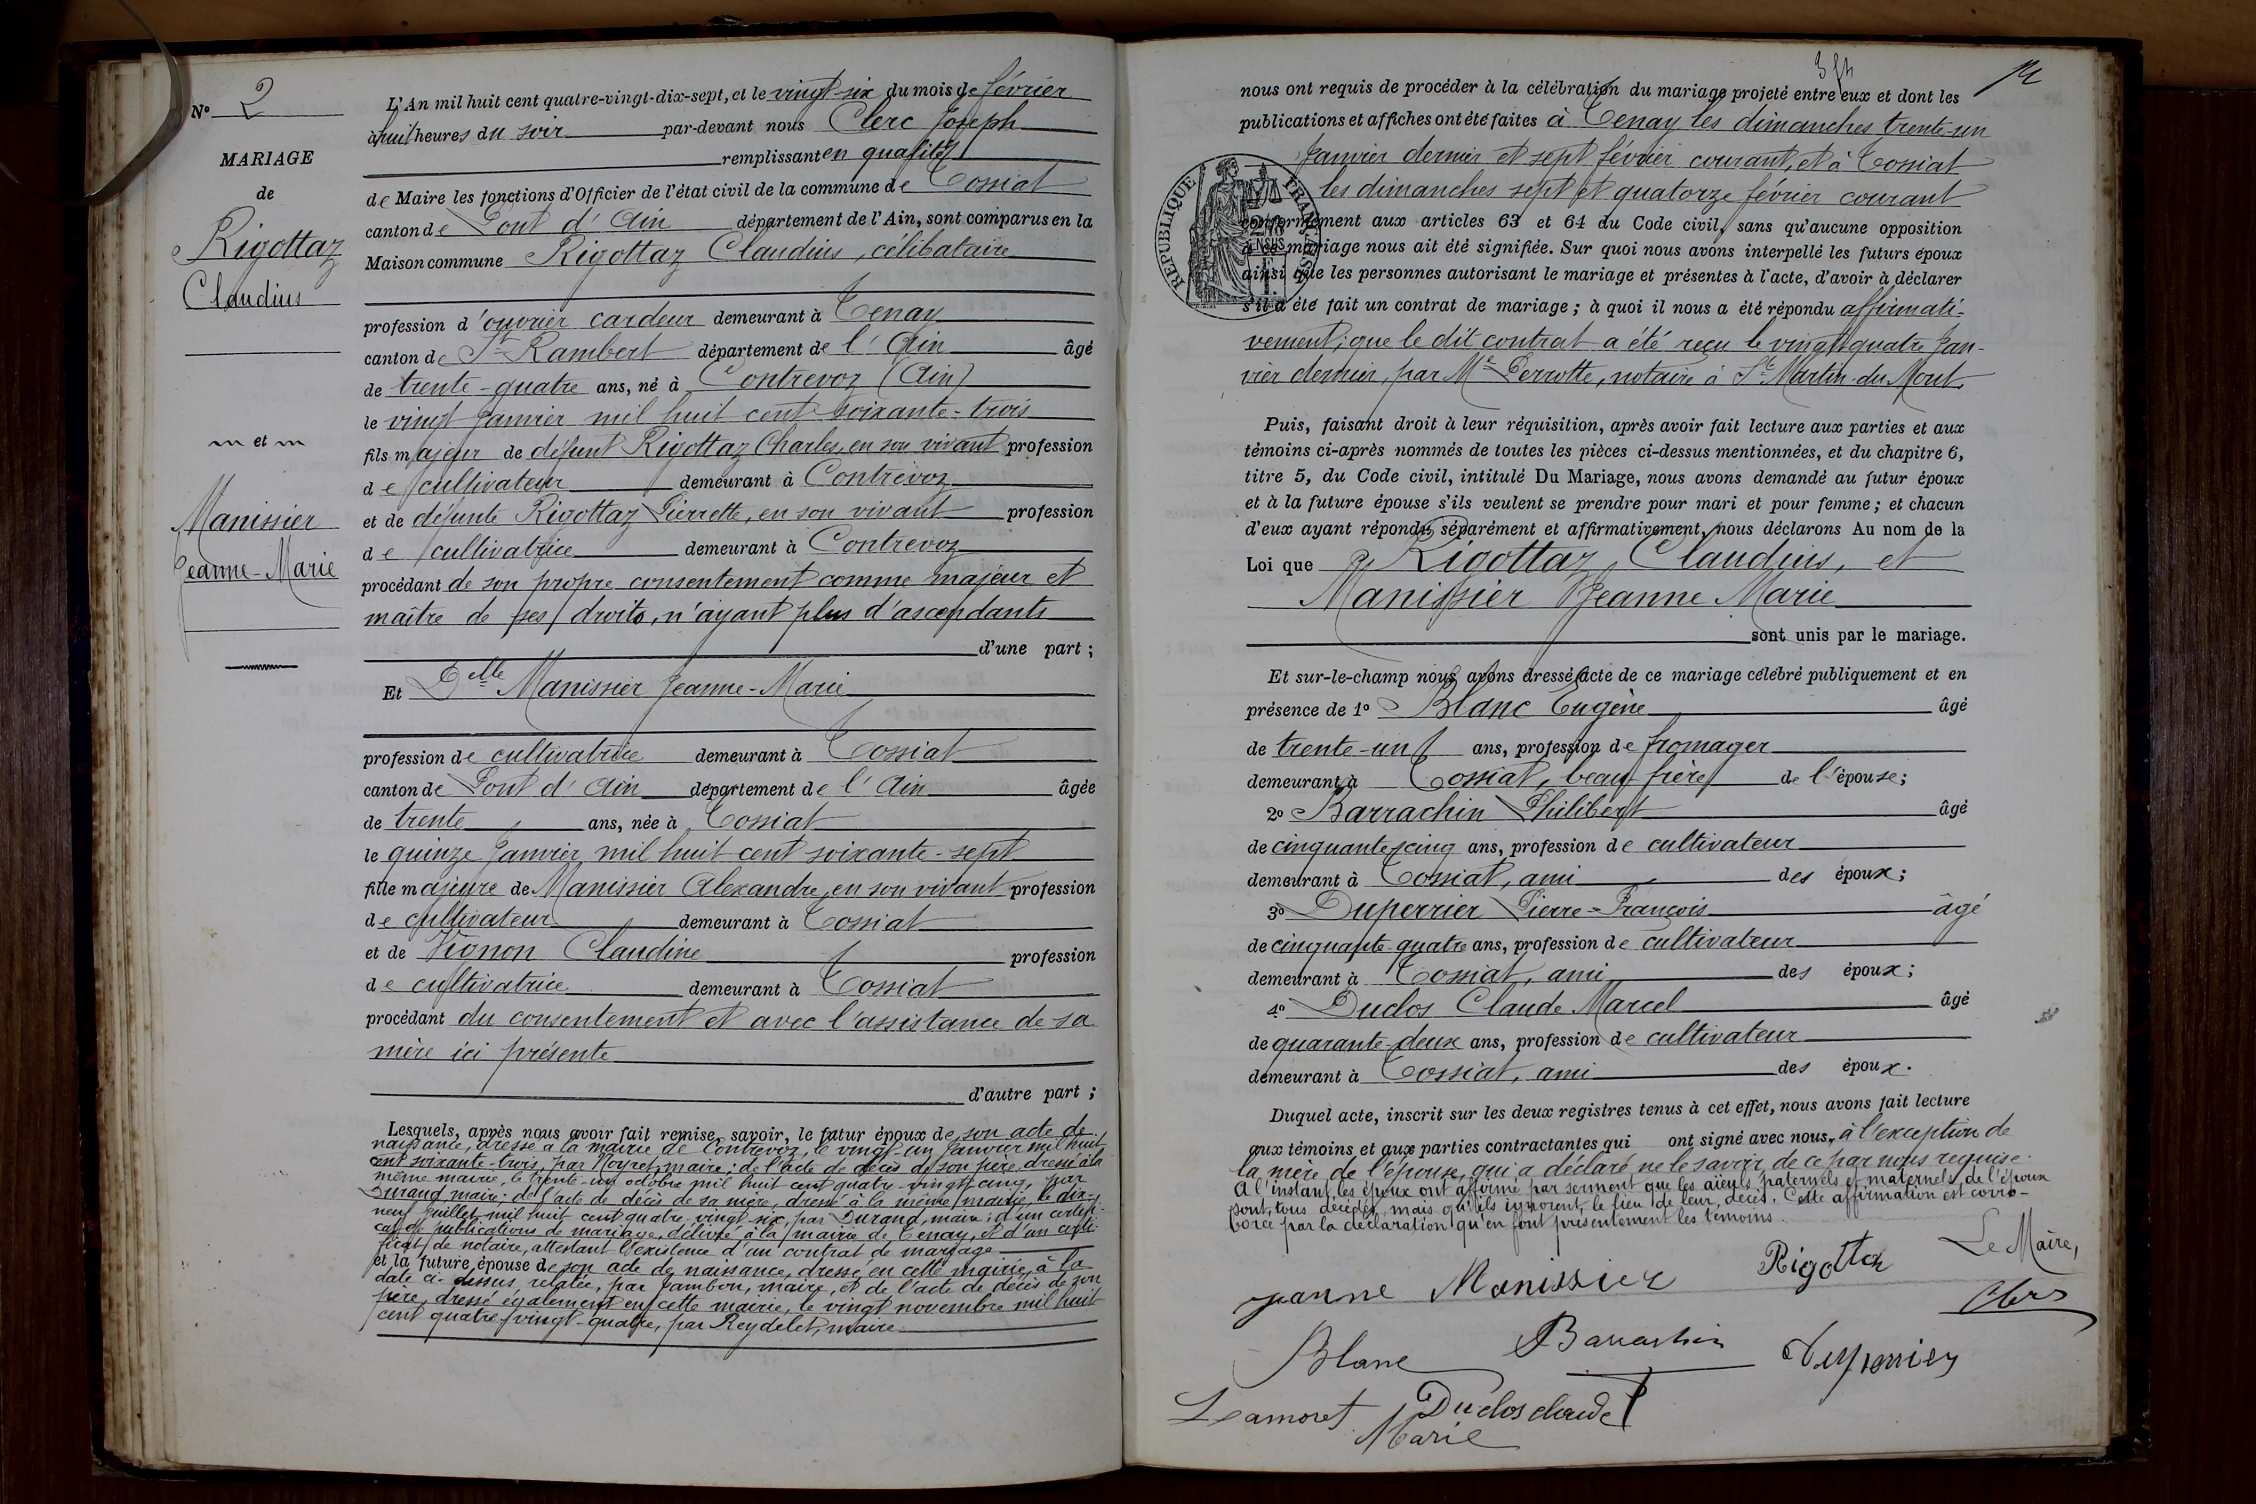 N° 2
MARIAGE
de
Rigottaz
Claudius
et
Manissier
Jeanne-Marie
L'An mil huit cent quatre-vingt-dix-sept, et le vingt-six du mois de février
à huit heures du soir par-devant nous Clerc Joseph
remplissant en qualité
de Maire les fonctions d'Officier de l'état civil de la commune de Tossiat
canton de Pont d'Ain département de l'Ain, sont comparus en la
Maison commune Rigottaz Claudius, célibataire
profession d'ouvrier cardeur demeurant à Tenay
canton de St Rambert département de l'Ain âgé
de trente-quatre ans, né à Contrevoz (Ain)
le vingt Janvier mil huit cent soixante-trois
fils majeur de défunt Rigottaz Charles, en son vivant profession
de cultivateur demeurant à Contrevoz
et de défunte Rigottaz Pierrette, en son vivant profession
de cultivatrice demeurant à Contrevoz
procédant de son propre consentement comme majeur et
maître de ses droits, n'ayant plus d'ascendants
d'une part ;
Et Delle Manissier Jeanne-Marie
profession de cultivatrice demeurant à Tossiat
canton de Pont d'Ain département de l'Ain âgée
de trente ans, née à Tossiat
le quinze Janvier mil huit cent soixante-sept
fille majeure de Manissier Alexandre, en son vivant profession
de cultivateur demeurant à Tossiat
et de Vignon Claudine profession
de cultivatrice demeurant à Tossiat
procédant du consentement et avec l'assistance de sa
mère ici présente
d'autre part ;
Lesquels, après nous avoir fait remise, savoir, le futur époux de son acte de
naissance, dressé à la mairie de Contrevoz, le vingt-un Janvier mil huit
cent soixante-trois, par Noyret, maire ; de l'acte de décès de son père, dressé à la
même mairie, le trente-un octobre mil huit cent quatre-vingt-cinq, par
Durand, maire ; de l'acte de décès de sa mère, dressé à la même mairie, le dix-
neuf Juillet mil huit cent quatre-vingt-six, par Durand, maire ; d'un certifi-
cat de publications de mariage, délivré à la mairie de Tenay, et d'un certi-
ficat de notaire, attestant l'existence d'un contrat de mariage
et la future épouse de son acte de naissance, dressé en cette mairie, à la
date ci-dessus relatée, par Jambon, maire, et de l'acte de décès de son
père, dressé également en cette mairie, le vingt novembre mil huit
cent quatre-vingt-quatre, par Reydelet, maire
nous ont requis de procéder à la célébration du mariage projeté entre eux et dont les
publications et affiches ont été faites à Tenay les dimanches trente-un
Janvier dernier et sept février courant, et à Tossiat
les dimanches sept et quatorze février courant
conformément aux articles 63 et 64 du Code civil, sans qu'aucune opposition
à ce mariage nous ait été signifiée. Sur quoi nous avons interpellé les futurs époux
ainsi que les personnes autorisant le mariage et présentes à l'acte, d'avoir à déclarer
s'il a été fait un contrat de mariage ; à quoi il nous a été répondu affirmati-
vement, que le dit contrat a été reçu le vingt-quatre Jan-
vier dernier, par Me Perrotte, notaire à St Martin-du-Mont.
REPUBLIQUE FRANÇAISE
Puis, faisant droit à leur réquisition, après avoir fait lecture aux parties et aux
témoins ci-après nommés de toutes les pièces ci-dessus mentionnées, et du chapitre 6,
titre 5, du Code civil, intitulé Du Mariage, nous avons demandé au futur époux
et à la future épouse s'ils veulent se prendre pour mari et pour femme ; et chacun
d'eux ayant répondu séparément et affirmativement, nous déclarons Au nom de la
Loi que Rigottaz Claudius, et
Manissier Jeanne Marie
sont unis par le mariage.
Et sur-le-champ nous avons dressé acte de ce mariage célébré publiquement et en
présence de 1° Blanc Eugène âgé
de trente-un ans, profession de fromager
demeurant à Tossiat, beau-frère de l'épouse ;
2° Barrachin Philibert âgé
de cinquante-cinq ans, profession de cultivateur
demeurant à Tossiat, ami des époux ;
3° Duperrier Pierre-François âgé
de cinquante-quatre ans, profession de cultivateur
demeurant à Tossiat, ami des époux ;
4° Duclos Claude Marcel âgé
de quarante-deux ans, profession de cultivateur
demeurant à Tossiat, ami des époux.
Duquel acte, inscrit sur les deux registres tenus à cet effet, nous avons fait lecture
aux témoins et aux parties contractantes qui ont signé avec nous, à l'exception de
la mère de l'épouse, qui a déclaré ne le savoir, de ce par nous requise.
A l'instant, les époux ont affirmé par serment que les aïeuls paternels et maternels de l'époux
sont tous décédés, mais qu'ils ignorent le lieu de leur décès. Cette affirmation est corro-
borée par la déclaration qu'en font présentement les témoins.
Le Maire,
Jeanne Manissier
Rigottaz
Clerc
Blanc
Barrachin
Duperrier
Leamoret
Duclos claude
Marie